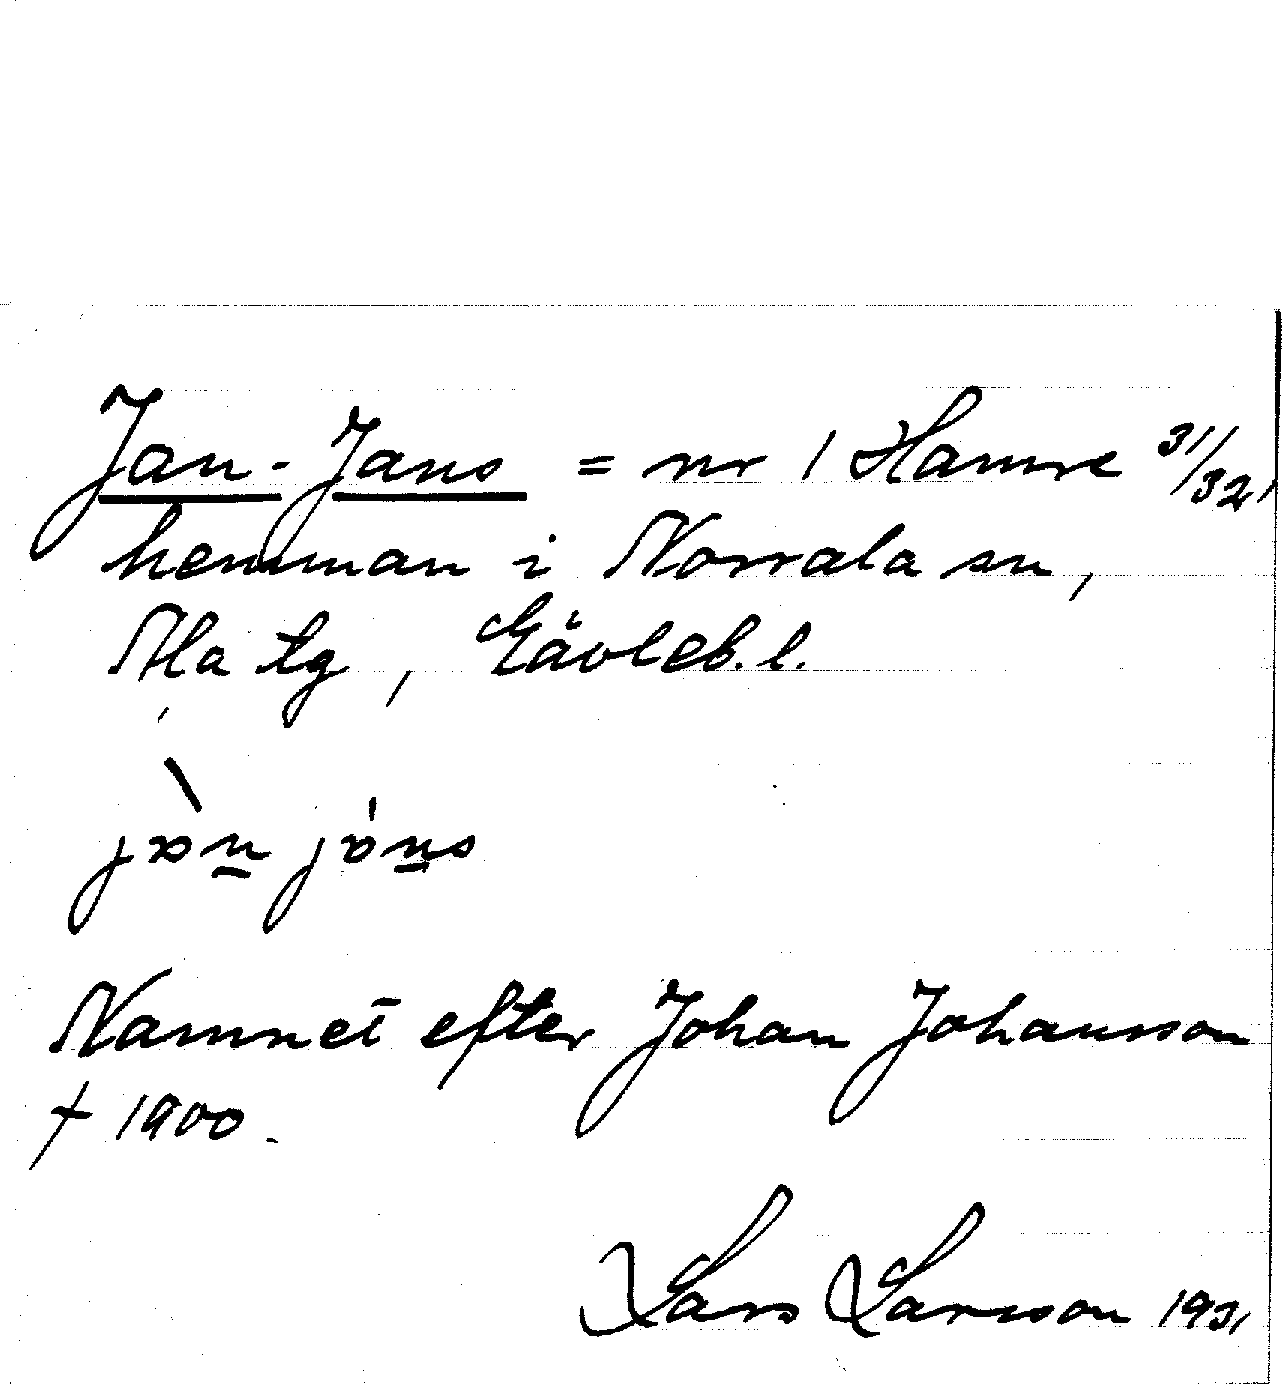 Jan-Jans = nr 1 Hamre 31/32,
hemman i Norrala sn,
Ala tg, Gävleb. l.
jan jans
Namnet efter Johan Johansson
† 1900.
Lars Larsson 1931